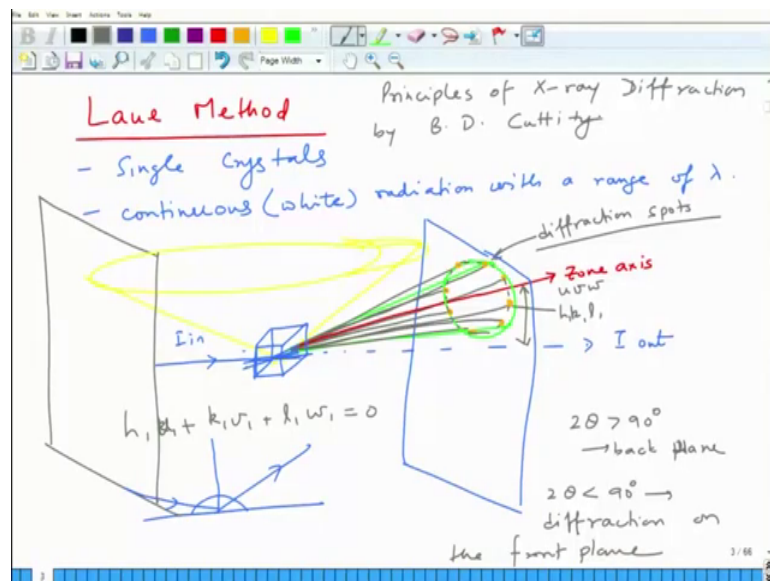 File Edit View Insert Actions Tools Help
Page Width
Laue Method
Principles of X-ray Diffraction
by B. D. Cullity
- Single Crystals
- continuous (white) radiation with a range of λ.
diffraction spots
Zone axis
u v w
h₁k₁l₁
I in
I out
h₁u₁ + k₁v₁ + l₁w₁ = 0
2θ > 90°
→ back plane
2θ < 90° →
diffraction on
the front plane
3 / 66